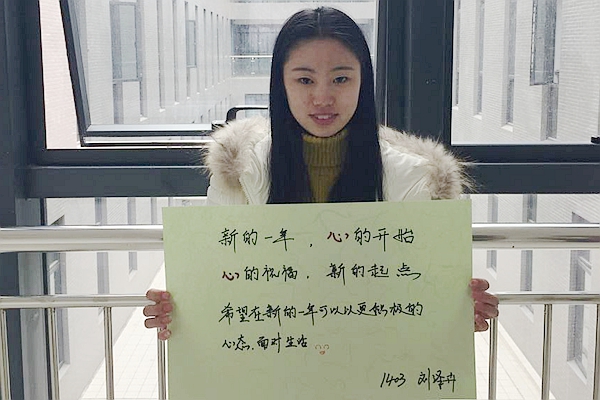 新的一年，心的开始
心的祝福，新的起点
希望在新的一年可以以更积极的
心态，面对生活
1403 刘泽卉